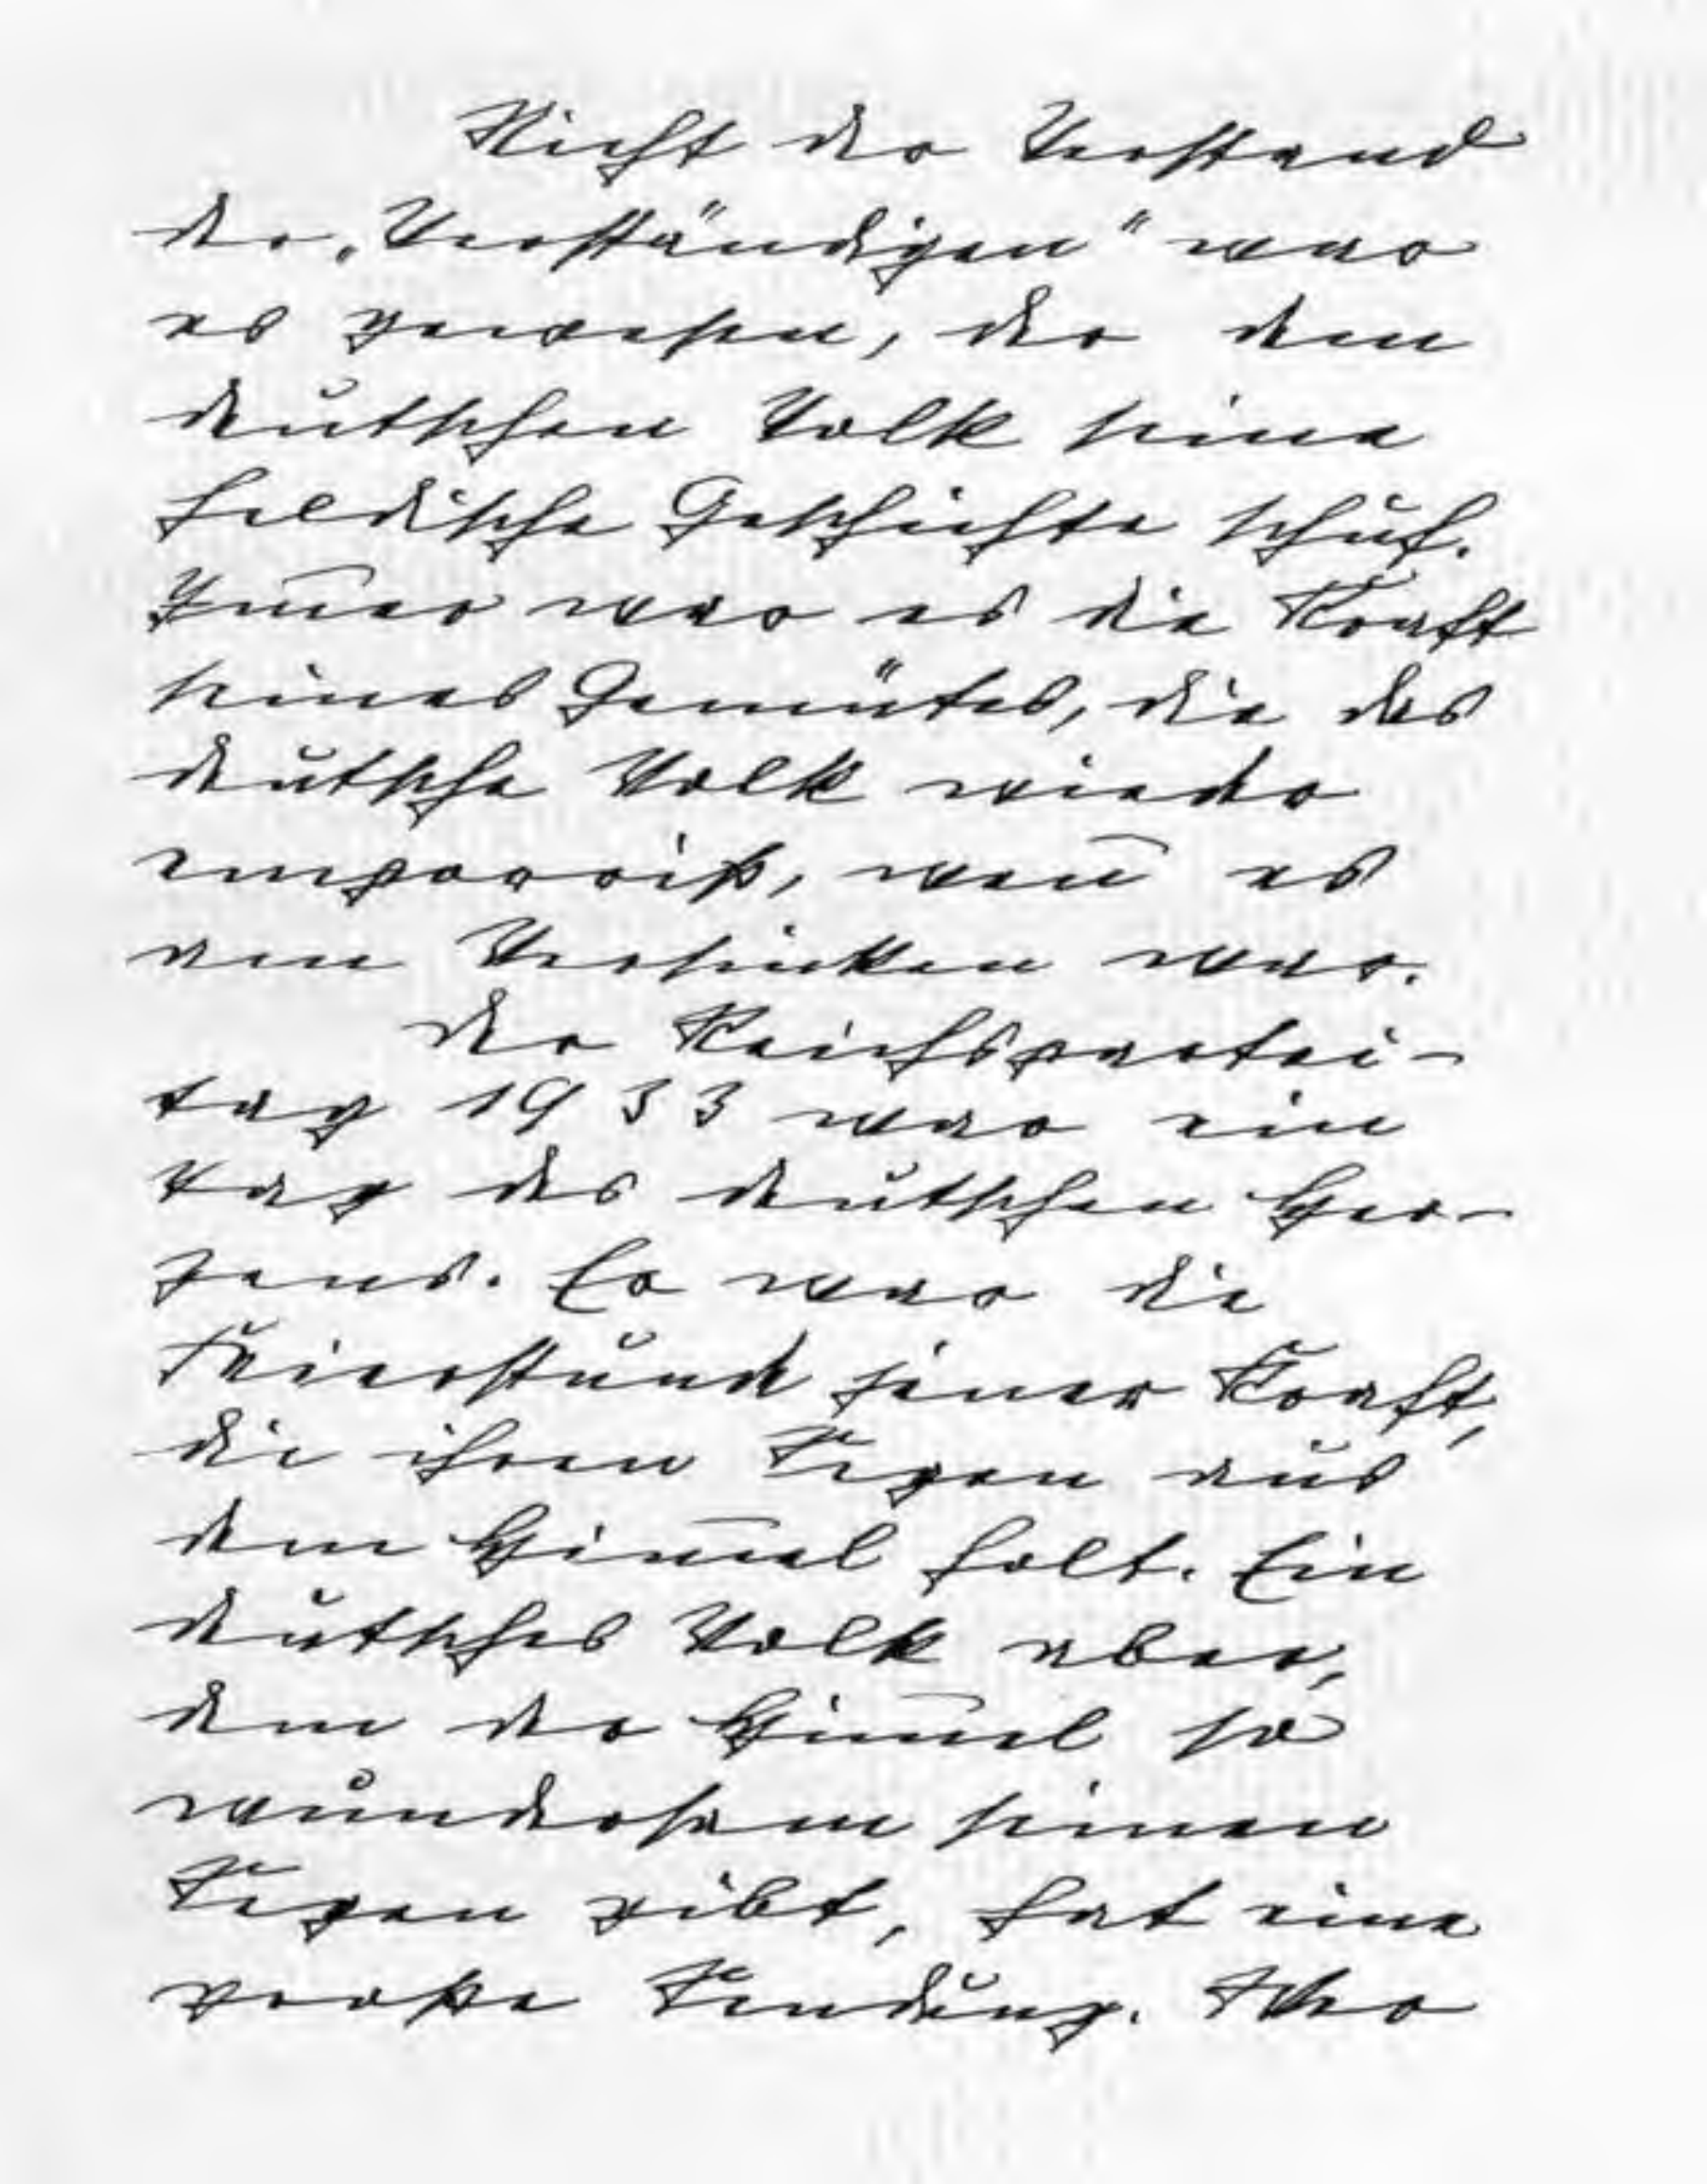 Nicht der Verstand
der „Verständigen" war
es gewesen, der dem
deutschen Volk seine
heldische Geschichte schuf.
Im̅er war es die Kraft
seines Gemütes, die das
deutsche Volk wieder
emporriß, wen̅ es
am Versinken war.
Der Reichspartei-
tag 1933 war ein
Tag des deutschen Her-
zens. Er war die
Feierstunde jener Kraft,
die ihren Segen aus
dem Him̅el holt. Ein
deutsches Volk aber,
dem der Him̅el so
wundersam seinen
Segen gibt, hat eine
große Sendung. Wer